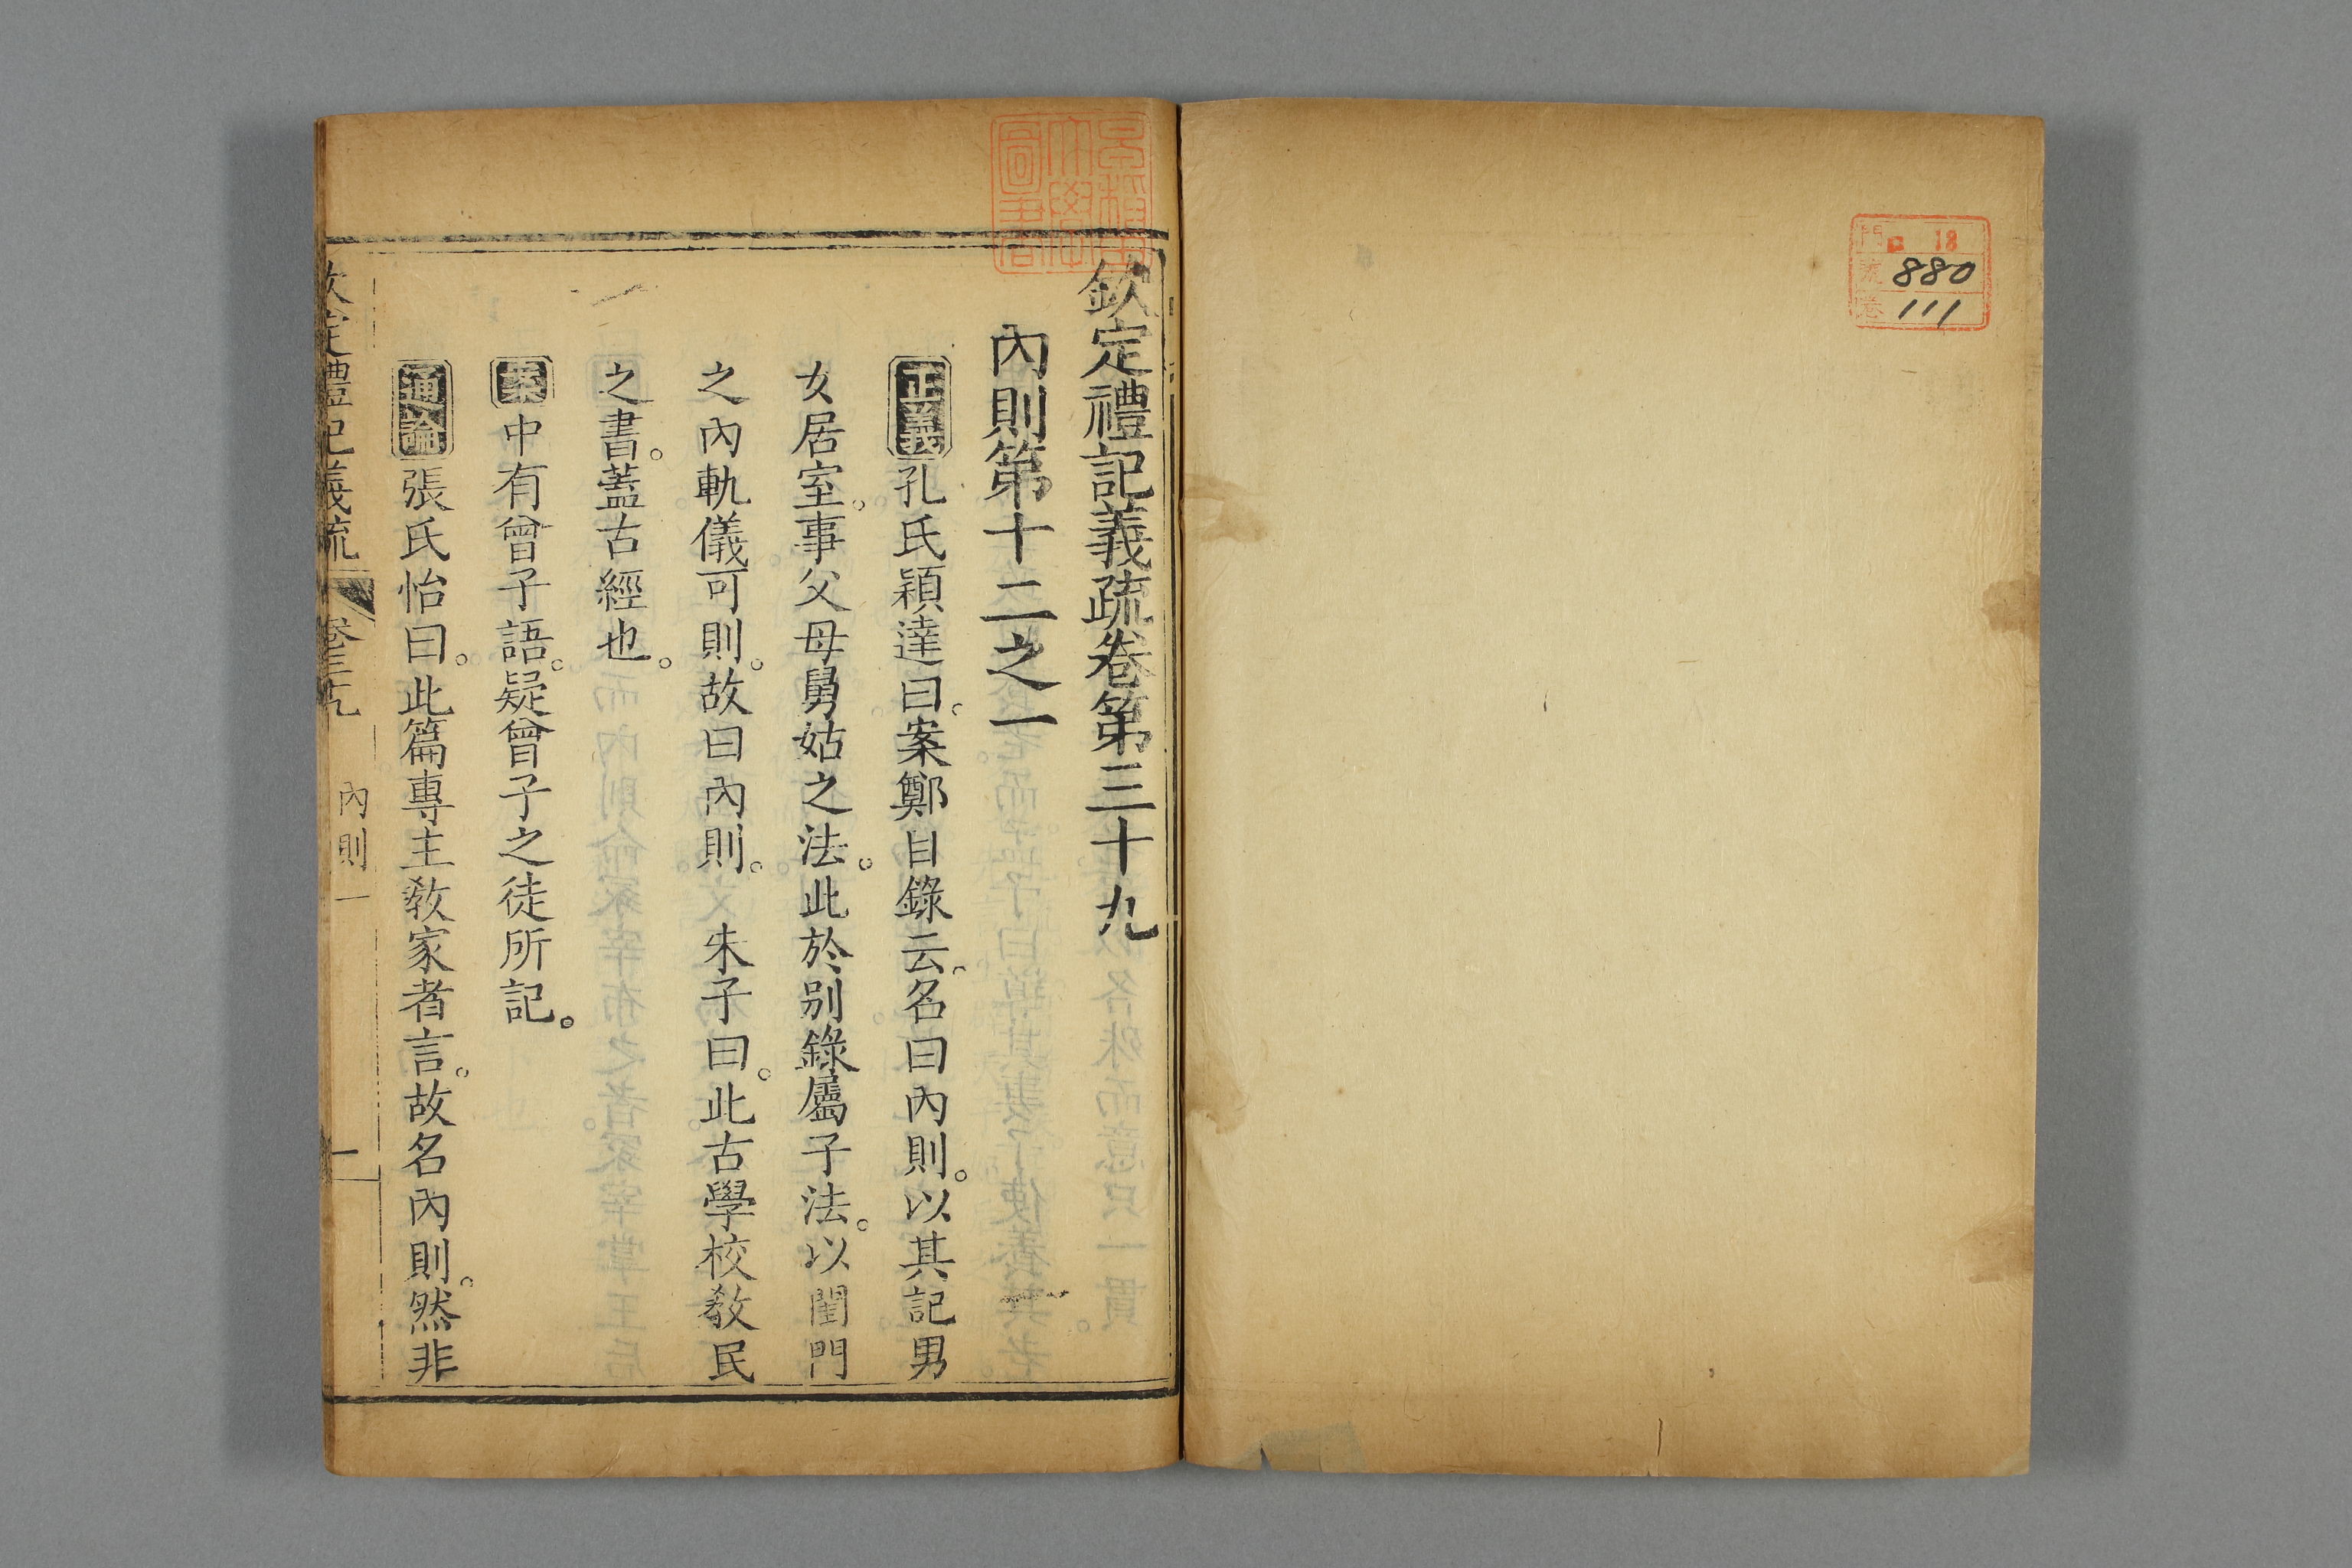 門 18
號 880
卷 111
早稻田大學圖書
欽定禮記義疏卷第三十九
內則第十二之一
正義孔氏穎達曰。案鄭目錄云。名曰內則。以其記男
女居室。事父母舅姑之法。此於別錄屬子法。以閨門
之內軌儀可則。故曰內則。 朱子曰。此古學校敎民
之書。蓋古經也。
案中有曾子語。疑曾子之徒所記。
通論張氏怡曰。此篇專主敎家者言。故名內則。然非
欽定禮記義疏 卷三十九 內則一 一